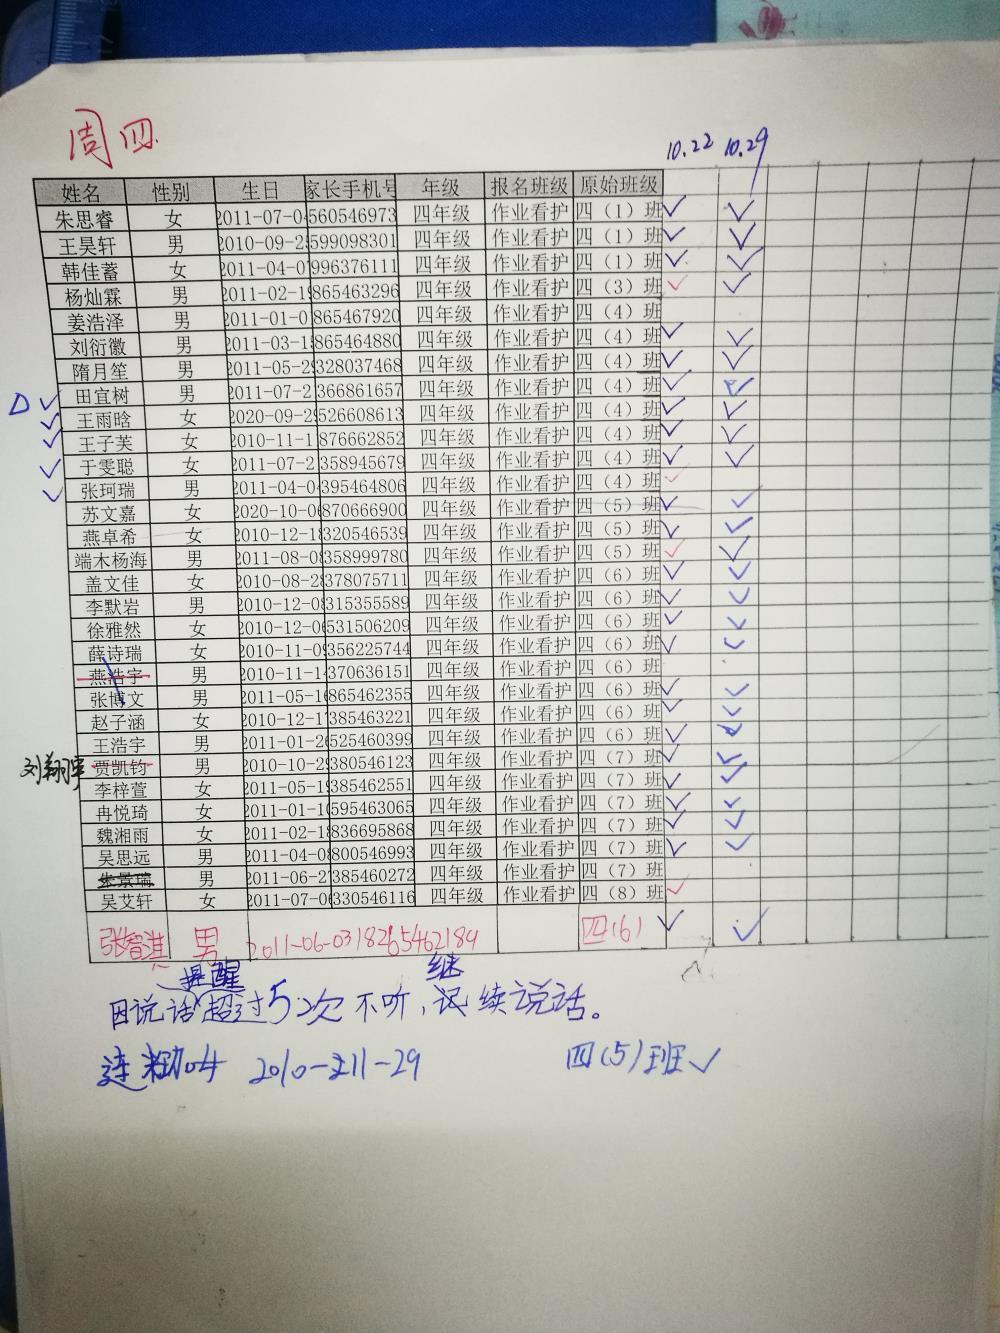 周四.
10.22 10.29
姓名 性别 生日 家长手机号 年级 报名班级 原始班级
朱思睿 女 2011-07-04 560546973 四年级 作业看护 四（1）班 ✓ ✓
王昊轩 男 2010-09-2 599098301 四年级 作业看护 四（1）班 ✓ ✓
韩佳蓄 女 2011-04-0 996376111 四年级 作业看护 四（1）班 ✓ ✓
杨灿霖 男 2011-02-1 865463296 四年级 作业看护 四（3）班 ✓ ✓
姜浩泽 男 2011-01-0 865467920 四年级 作业看护 四（4）班
刘衍徽 男 2011-03-1 865464880 四年级 作业看护 四（4）班 ✓ ✓
隋月笙 男 2011-05-29 328037468 四年级 作业看护 四（4）班 ✓ ✓
田宜树 男 2011-07-2 366861657 四年级 作业看护 四（4）班 ✓ ✓
D ✓ 王雨晗 女 2020-09-29 526608613 四年级 作业看护 四（4）班 ✓ ✓
✓ 王子芙 女 2010-11-1 876662852 四年级 作业看护 四（4）班 ✓ ✓
✓ 于雯聪 女 2011-07-2 358945679 四年级 作业看护 四（4）班 ✓ ✓
✓ 张珂瑞 男 2011-04-04 395464806 四年级 作业看护 四（4）班 ✓
✓ 苏文嘉 女 2020-10-06 870666900 四年级 作业看护 四（5）班 ✓ ✓
燕卓希 女 2010-12-18 320546539 四年级 作业看护 四（5）班 ✓ ✓
端木杨海 男 2011-08-08 358999780 四年级 作业看护 四（5）班 ✓ ✓
盖文佳 女 2010-08-28 378075711 四年级 作业看护 四（6）班 ✓ ✓
李默岩 男 2010-12-08 315355589 四年级 作业看护 四（6）班 ✓ ✓
徐雅然 女 2010-12-06 531506209 四年级 作业看护 四（6）班 ✓ ✓
薛诗瑞 女 2010-11-09 356225744 四年级 作业看护 四（6）班 ✓ ✓
燕浩宇 男 2010-11-14 370636151 四年级 作业看护 四（6）班
张博文 男 2011-05-16 865462355 四年级 作业看护 四（6）班 ✓ ✓
赵子涵 女 2010-12-17 385463221 四年级 作业看护 四（6）班 ✓ ✓
王浩宇 男 2011-01-26 525460399 四年级 作业看护 四（6）班 ✓ ✓
刘翔宇 贾凯钧 男 2010-10-29 380546123 四年级 作业看护 四（7）班 ✓ ✓
李梓萱 女 2011-05-19 385462551 四年级 作业看护 四（7）班 ✓ ✓
冉悦琦 女 2011-01-10 595463065 四年级 作业看护 四（7）班 ✓ ✓
魏湘雨 女 2011-02-18 836695868 四年级 作业看护 四（7）班 ✓ ✓
吴思远 男 2011-04-08 800546993 四年级 作业看护 四（7）班 ✓ ✓
朱景瑞 男 2011-06-27 385460272 四年级 作业看护 四（7）班
吴艾轩 女 2011-07-06 330546116 四年级 作业看护 四（8）班 ✓
张智淇 男 2011-06-03 18265462184 四（6） ✓ ✓
提醒 继
因说话超过5次不听，记续说话。
2010-211-29 四（5）班✓